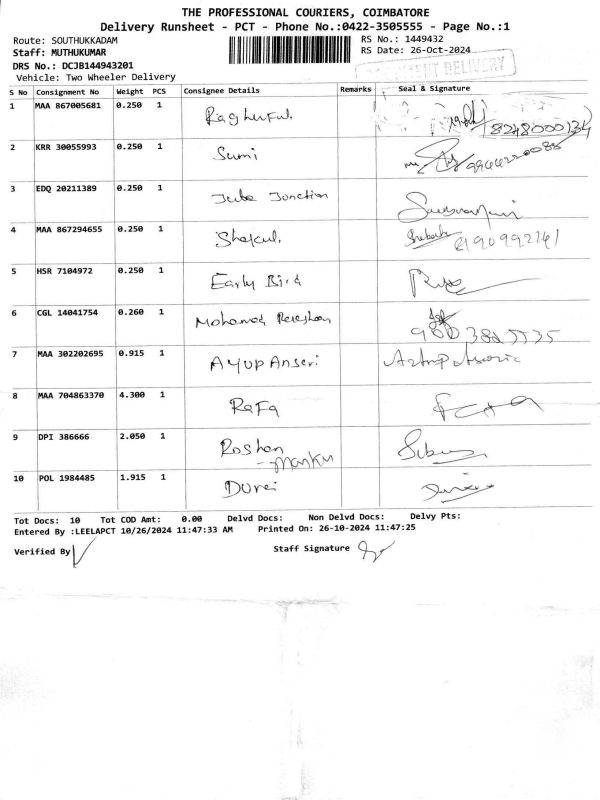 THE PROFESSIONAL COURIERS, COIMBATORE
Delivery Runsheet - PCT - Phone No.:0422-3505555 - Page No.:1
Route: SOUTHUKKADAM RS No.: 1449432
Staff: MUTHUKUMAR RS Date: 26-Oct-2024
DRS No.: DCJB144943201
Vehicle: Two Wheeler Delivery DELIVERY
S No Consignment No Weight PCS Consignee Details Remarks Seal & Signature
1 MAA 867005681 0.250 1 8248000134
2 KRR 30055993 0.250 1 Sumi
3 EDQ 20211389 0.250 1 Jute Junction
4 MAA 867294655 0.250 1 Shakul.
5 HSR 7104972 0.250 1 Early Bird
6 CGL 14041754 0.260 1 Mohamed
7 MAA 302202695 0.915 1 Ayup Anseri
8 MAA 704863370 4.300 1 Rafa
9 DPI 386666 2.050 1 Roshan
10 POL 1984485 1.915 1 Durai
Tot Docs: 10 Tot COD Amt: 0.00 Delvd Docs: Non Delvd Docs: Delvy Pts:
Entered By :LEELAPCT 10/26/2024 11:47:33 AM Printed On: 26-10-2024 11:47:25
Verified By Staff Signature